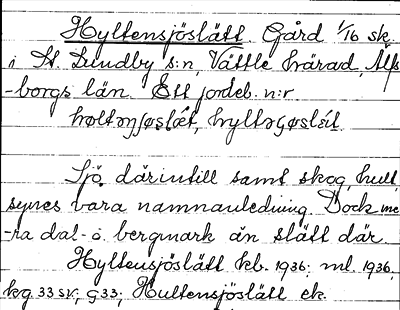 Hyltensjöslätt. Gård 1/16 sk.
i St. Lundby s:n, Vättle härad, Älfs
-borgs län. Ett jordeb. n:r
Sjö därintill samt skog, hult,
synes vara namnanledning. Dock me
-ra dal- o. bergmark än slätt där.
Hyltensjöslätt kb. 1936; ml. 1936,
kg 33 sv; g 33; Hultensjöslätt ek.